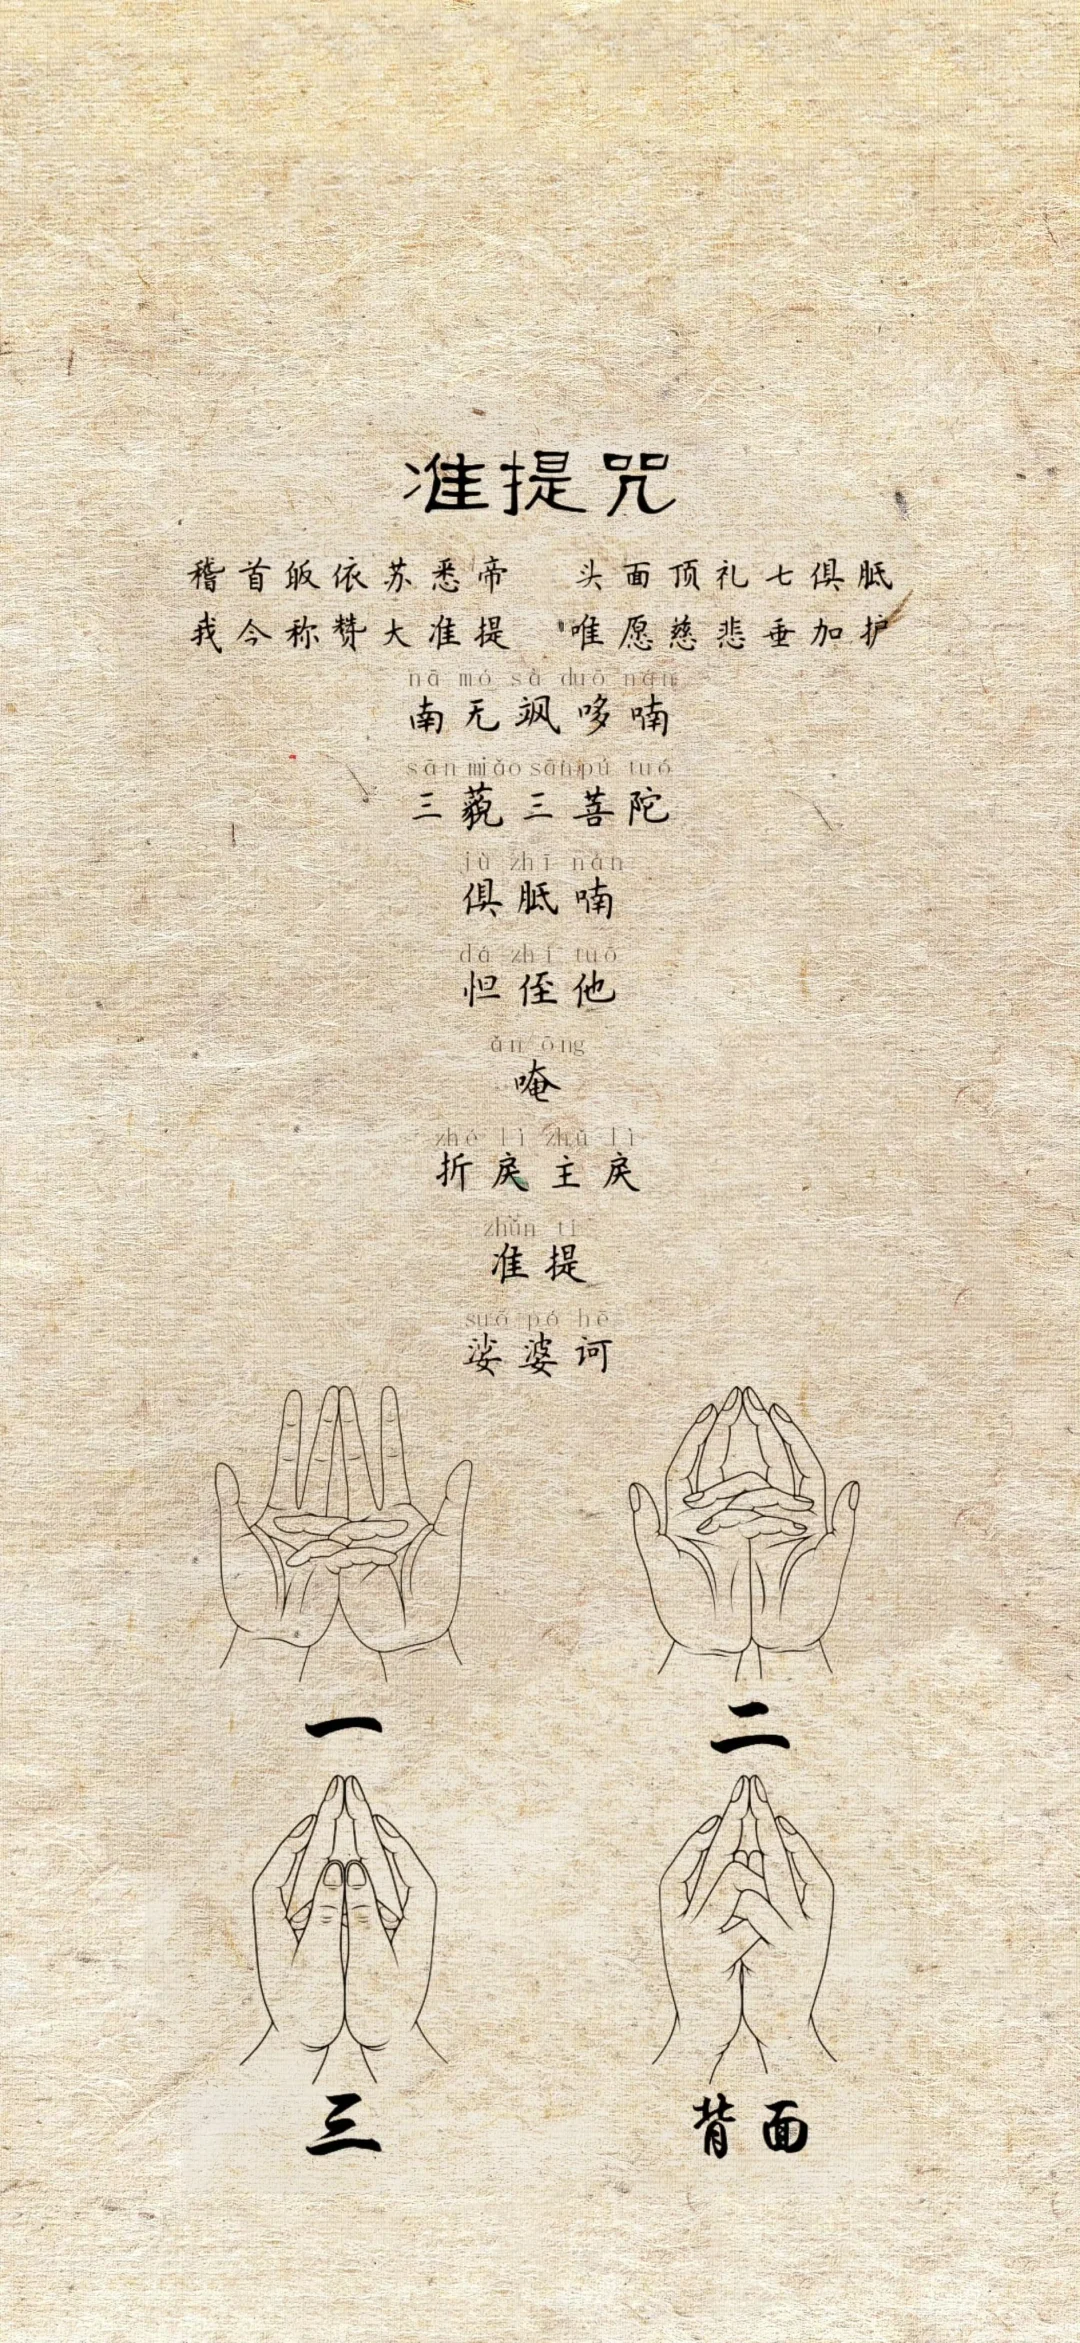 准提咒
稽首皈依苏悉帝 头面顶礼七俱胝
我今称赞大准提 唯愿慈悲垂加护
nā mó sà duō nán
南无飒哆喃
sān miǎo sān pú tuó
三藐三菩陀
jù zhī nán
俱胝喃
dá zhí tuō
怛侄他
ǎn ōng
唵
zhé lì zhǔ lì
折戾主戾
zhǔn tí
准提
suō pó hē
娑婆诃
一 二
三 背面